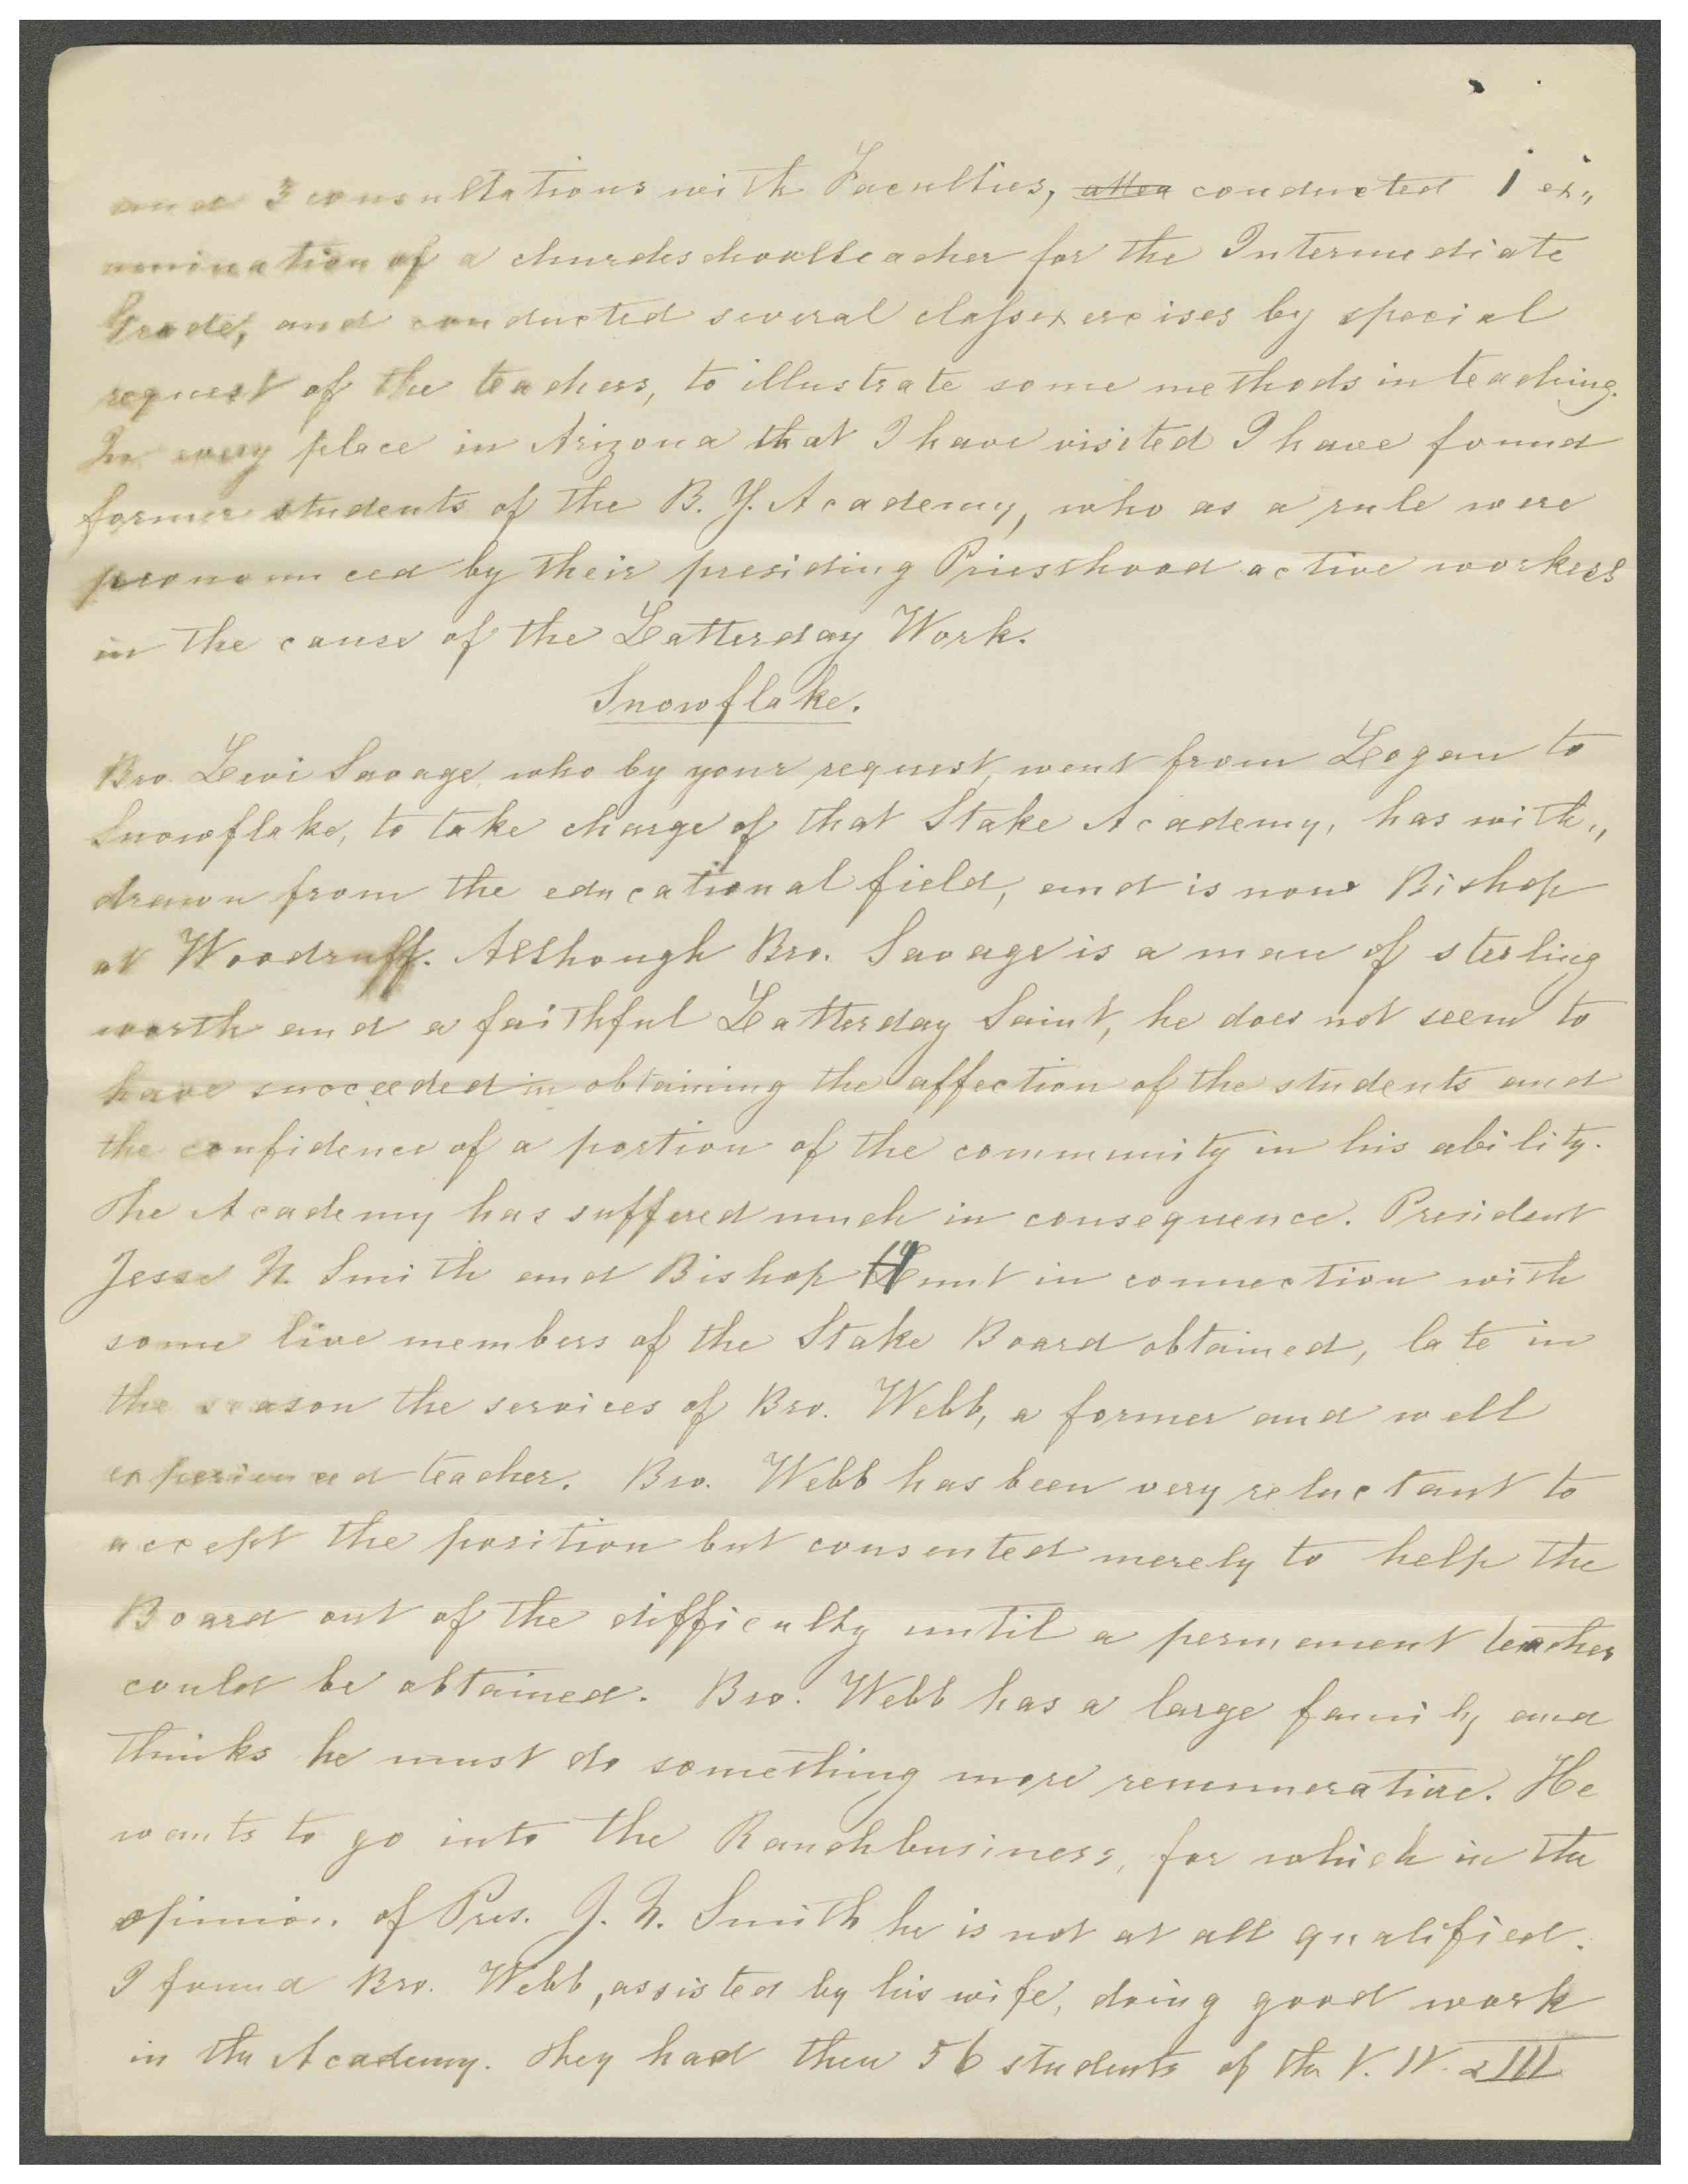 and 3 consultations with Faculties, atten conducted 1 ex„
amination of a churchschoolteacher for the Intermediate
Grade, and conducted several classexercises by special
request of the teachers, to illustrate some methods in teaching.
In every place in Arizona that I have visited I have found
former students of the B. Y. Academy, who as a rule were
pronounced by their presiding Priesthood active workers
in the cause of the Latterday Work.
Snowflake.
Bro. Levi Savage, who by your request, went from Logan to
Snowflake, to take charge of that Stake Academy, has with„
drawn from the educational field, and is now Bishop
at Woodruff. Although Bro. Savage is a man of sterling
worth and a faithful Latterday Saint, he does not seem to
have succeeded in obtaining the affection of the students and
the confidence of a portion of the community in his ability.
The Academy has suffered much in consequence. President
Jesse N. Smith and Bishop Hunt in connection with
some live members of the Stake Board obtained, late in
the season the services of Bro. Webb, a former and well
experienced teacher. Bro. Webb has been very reluctant to
accept the position but consented merely to help the
Board out of the difficulty until a permement teacher
could be obtained. Bro. Webb has a large family and
thinks he must do something more remunerative. He
wants to go into the Ranchbusiness, for which in the
opinion of Pres. J. N. Smith he is not at all qualified.
I found Bro. Webb, assisted by his wife, doing good work
in the Academy. They had then 56 students of the V. IV. & III